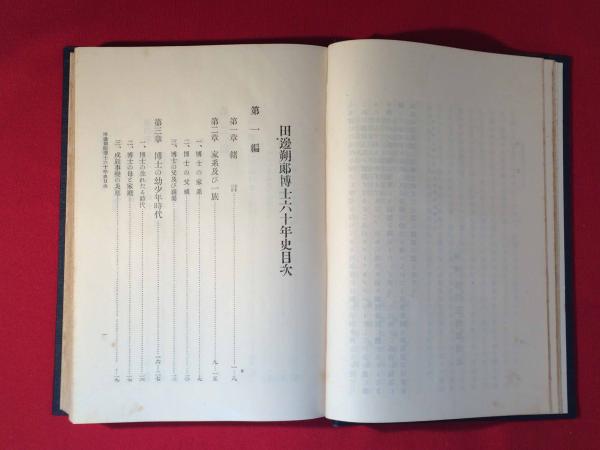 田邊朔郎博士六十年史目次
第一編
第一章 緒言 一-八
第二章 家系及び一族 九-一五
一、博士の家系 九
二、博士の父祖
三、博士の父及び
第三章 博士の幼少年時代 一六-二七
一、博士の生れたる時代 一六
二、博士の母と家庭
三、戊辰事變の
田邊朔郎博士六十年史目次
一